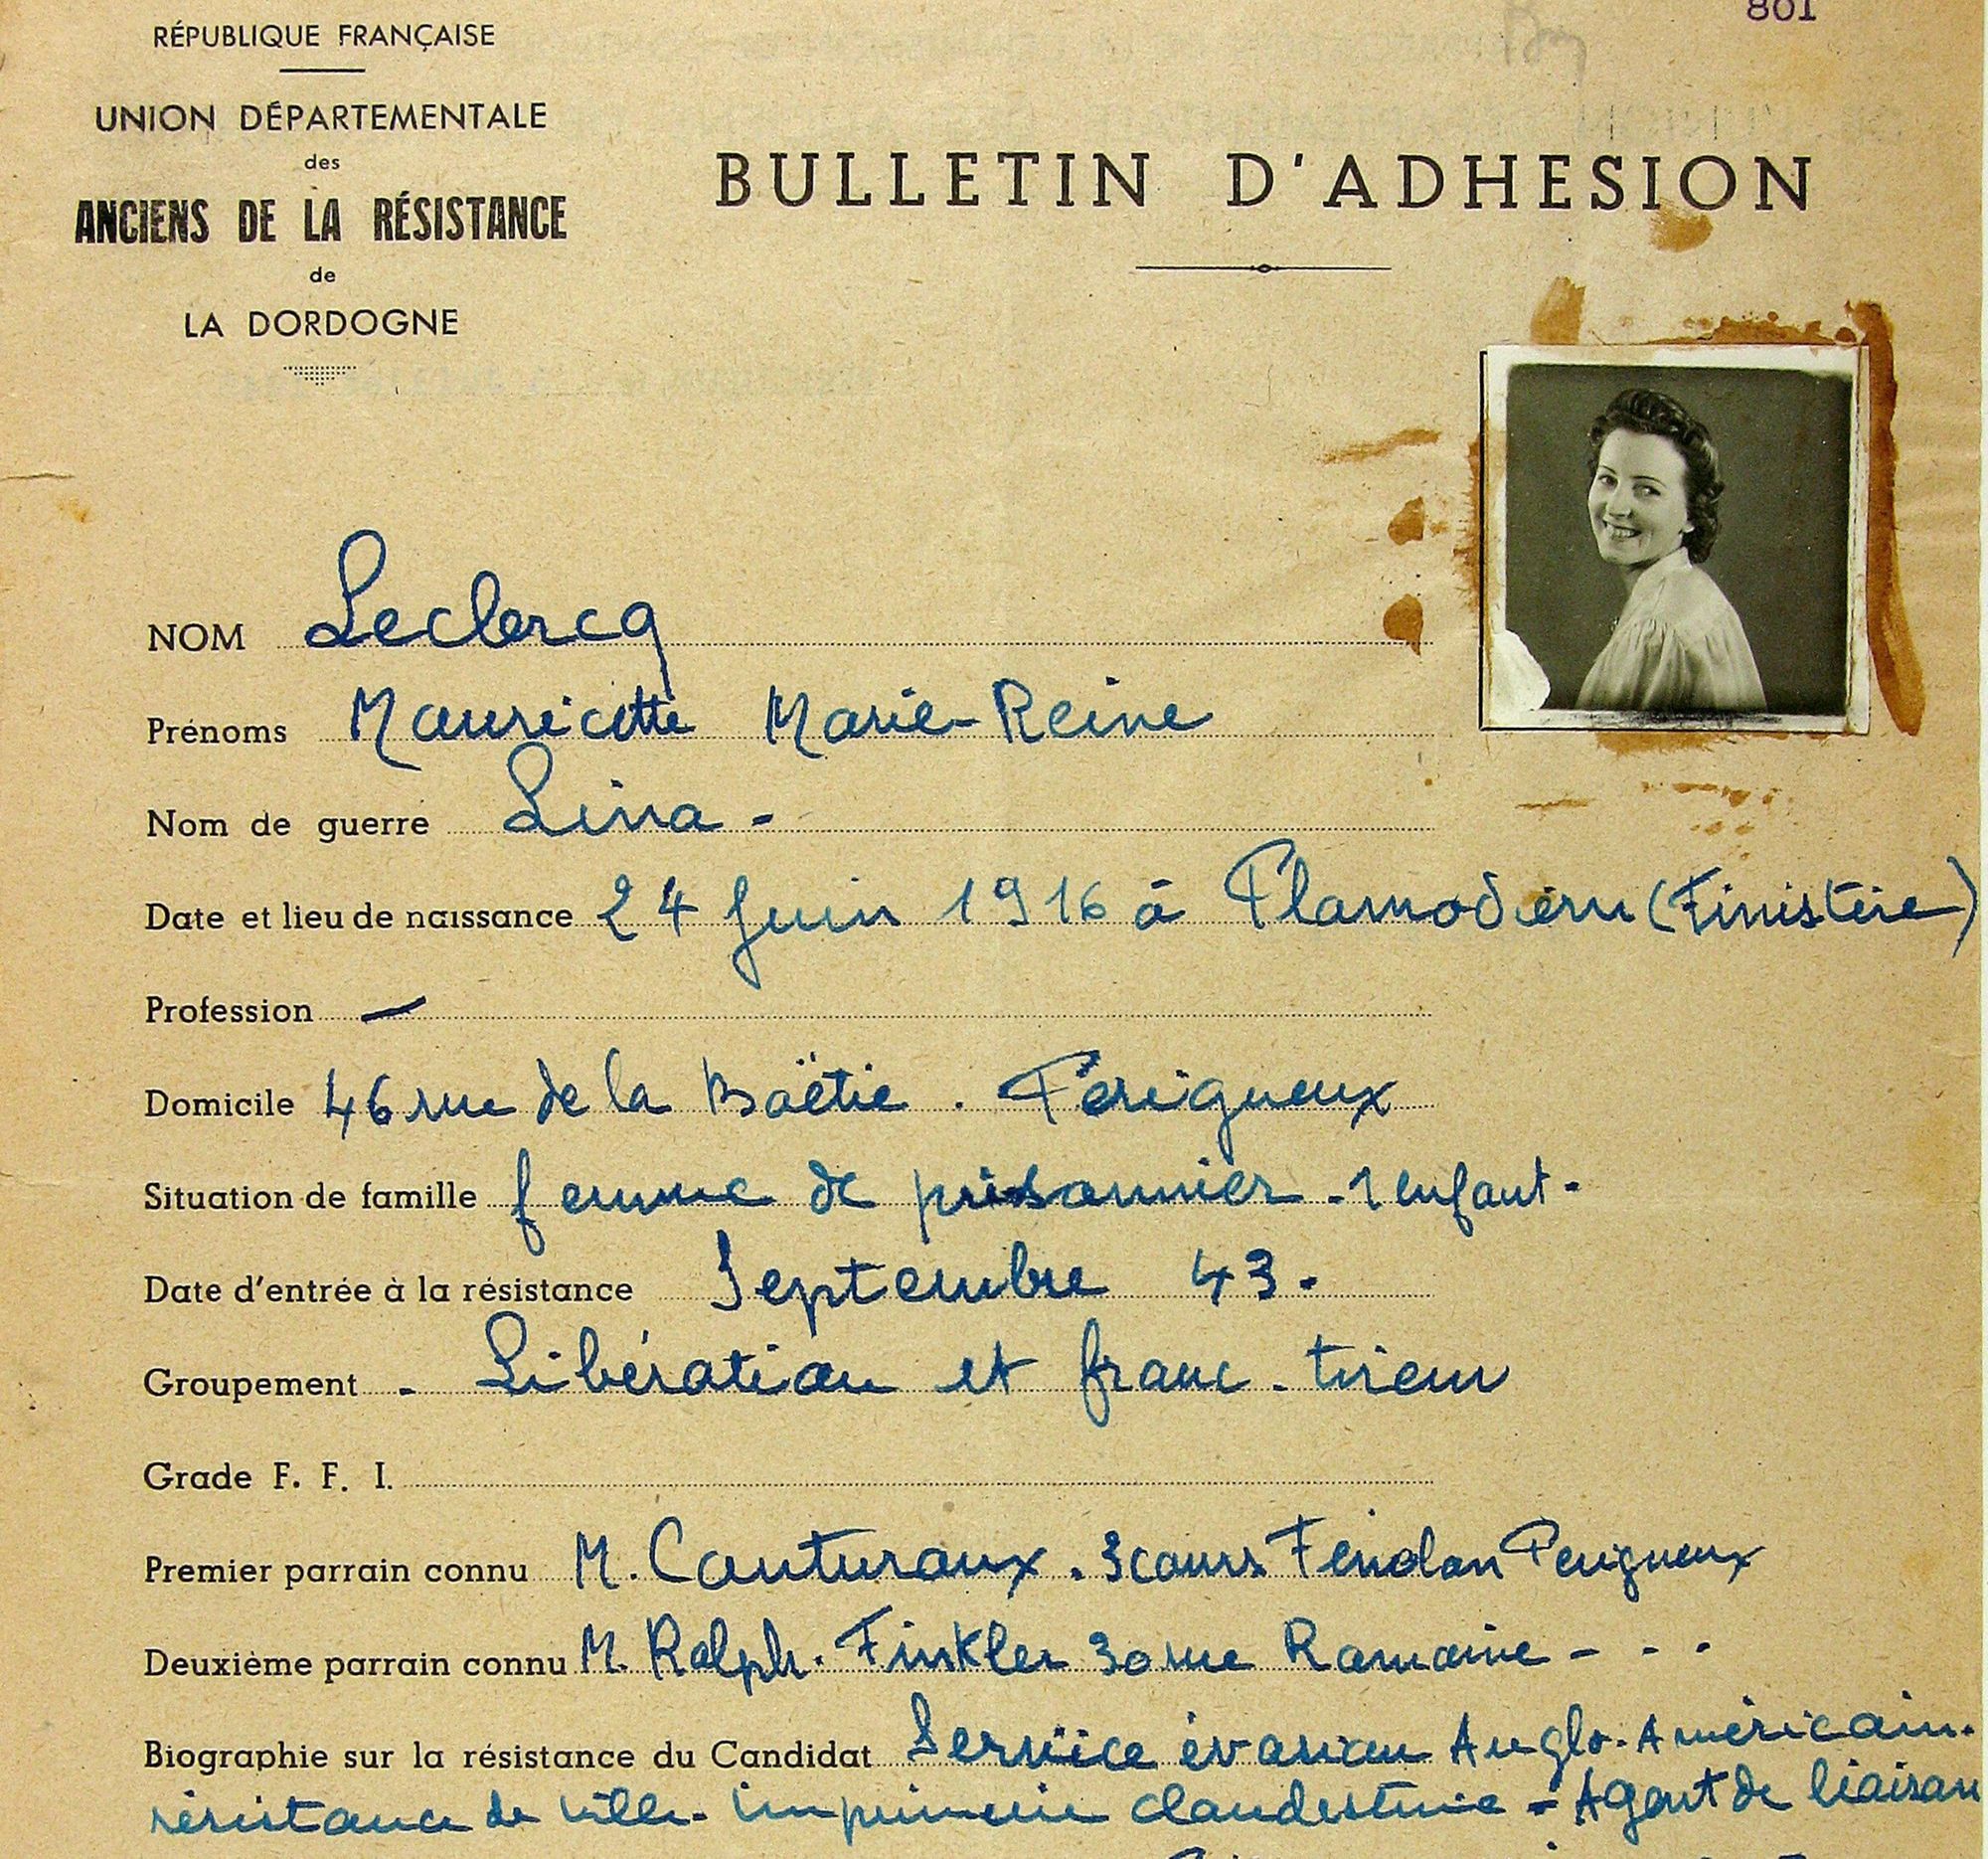 801
RÉPUBLIQUE FRANÇAISE
UNION DÉPARTEMENTALE
des
ANCIENS DE LA RÉSISTANCE
de
LA DORDOGNE
BULLETIN D'ADHESION
NOM Leclercq
Prénoms Mauricette Marie-Reine
Nom de guerre Lina -
Date et lieu de naissance 24 Juin 1916 à Plamodiern (Finistère)
Profession —
Domicile 46 rue de la Boëtie . Perigueux
Situation de famille femme de prisonnier - 1 enfant -
Date d'entrée à la résistance Septembre 43.
Groupement - Libération et franc-tireur
Grade F. F. I.
Premier parrain connu M. Couturoux . 3 cours Fénolan Perigueux
Deuxième parrain connu M. Ralph. Finkler 30 rue Romaine - - -
Biographie sur la résistance du Candidat Service évasion Anglo-Américain.
résistance de ville - imprimerie clandestine - Agent de liaison